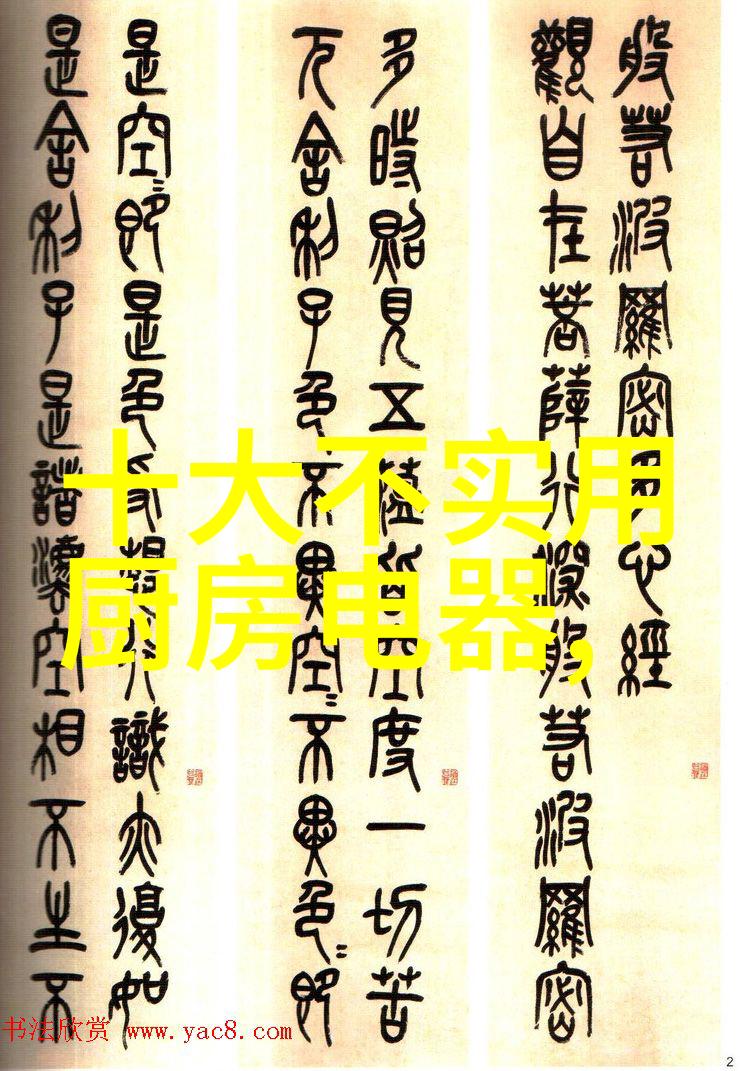 般若波羅密多心經
觀自在菩薩行深般若波羅密
多時照見五蘊皆空度一切苦
厄舍利子色不異空〻不異色〻即
是空〻即是色受想行識亦復如
是舍利子是諸灋空相不生不
十大不实用
厨房电器,
书法欣赏 www.yac8.com
2